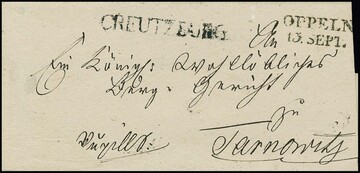 CREUTZBURG
OPPELN
13. SEPT.
An
Ein Königs: Wohllöbliches
Berg: Gericht
zu
Tarnowitz